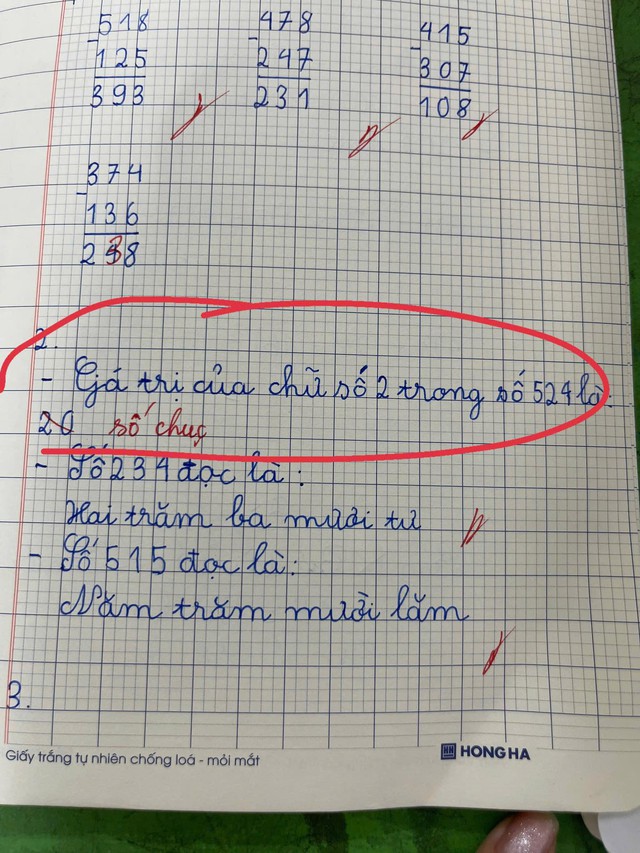 518 478 415
- - -
125 247 307
393 231 108
374
-
136
238
2.
- Gá trị của chữ số 2 trong số 524 là:
20 số chục
- Số 234 đọc là:
Hai trăm ba mươi tư
- Số 515 đọc là:
Năm trăm mười lăm
3.
Giấy trắng tự nhiên chống loá - mỏi mắt
HH HONG HA